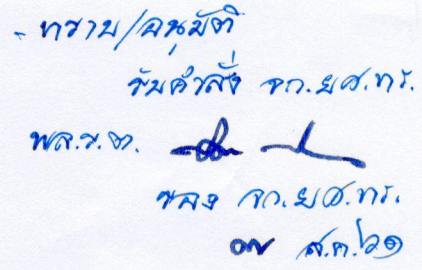 - ทราบ/อนุมัติ
รับคำสั่ง จก.ยศ.ทร.
พล.ร.ต.
รอง จก.ยศ.ทร.
๑๗ ส.ค. ๖๑